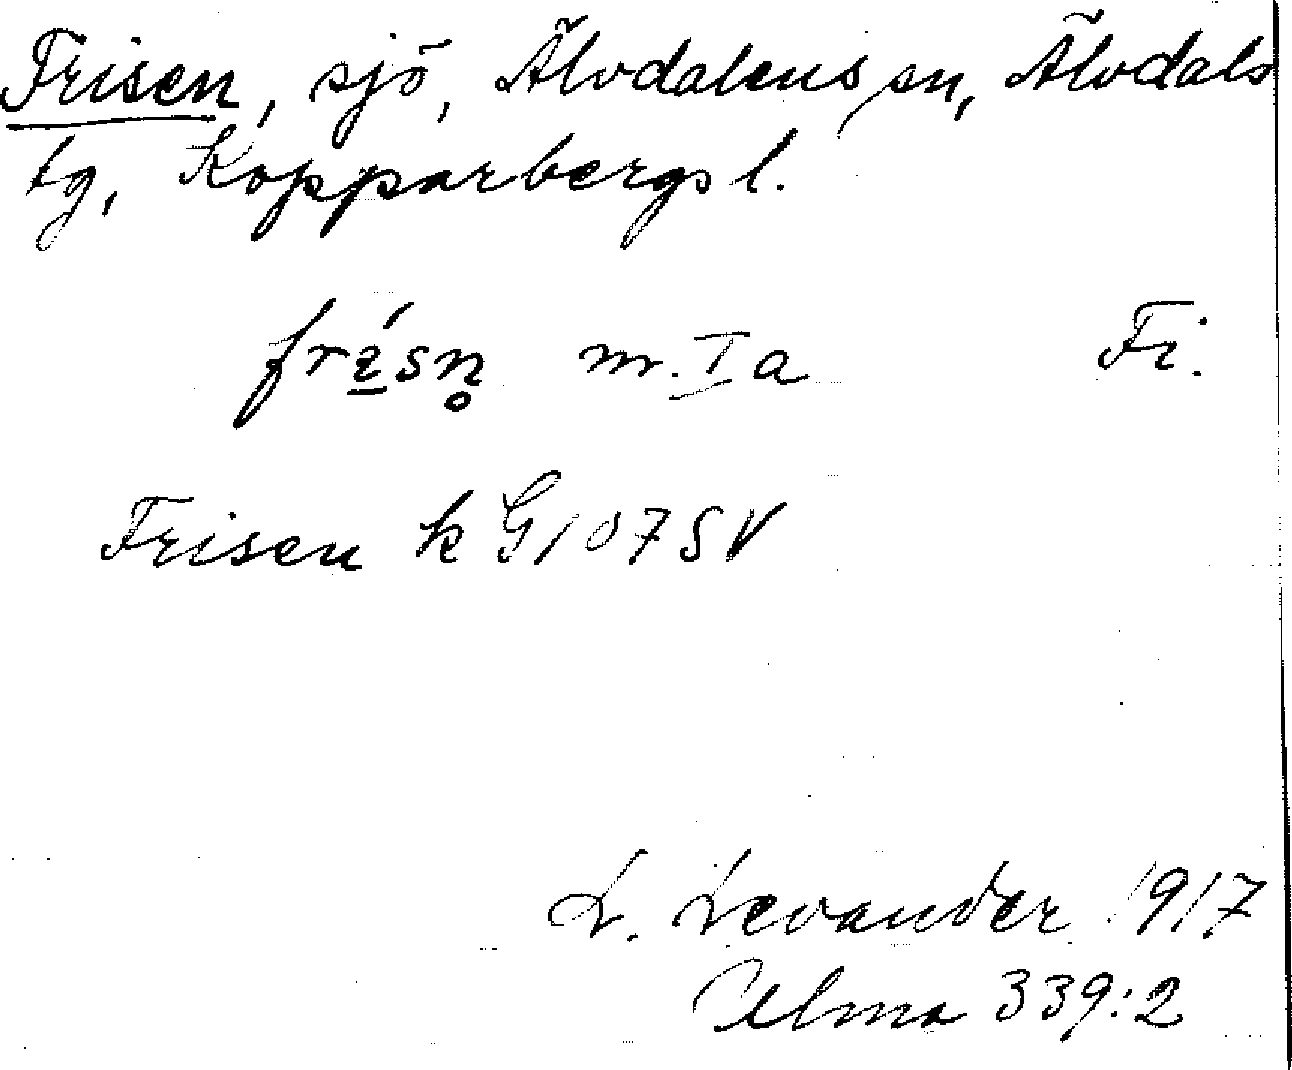 Frisen, sjö, Älvdalens sn, Älvdals
tg, Kopparbergs l.
m. I a Fi.
Frisen k G 107 SV
L. Levander 1917
Ulma 339:2